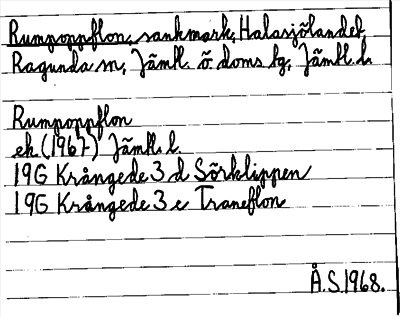 Rumpoppflon, sankmark, Halasjölandet,
Ragunda sn, Jämtl. ö doms kg, Jämtl. l.
Rumpoppflon
ek (1967) Jämtl. l.
19G Krångede 3 d Sörklippen
19G Krångede 3 e Traneflon
Å.S. 1968.